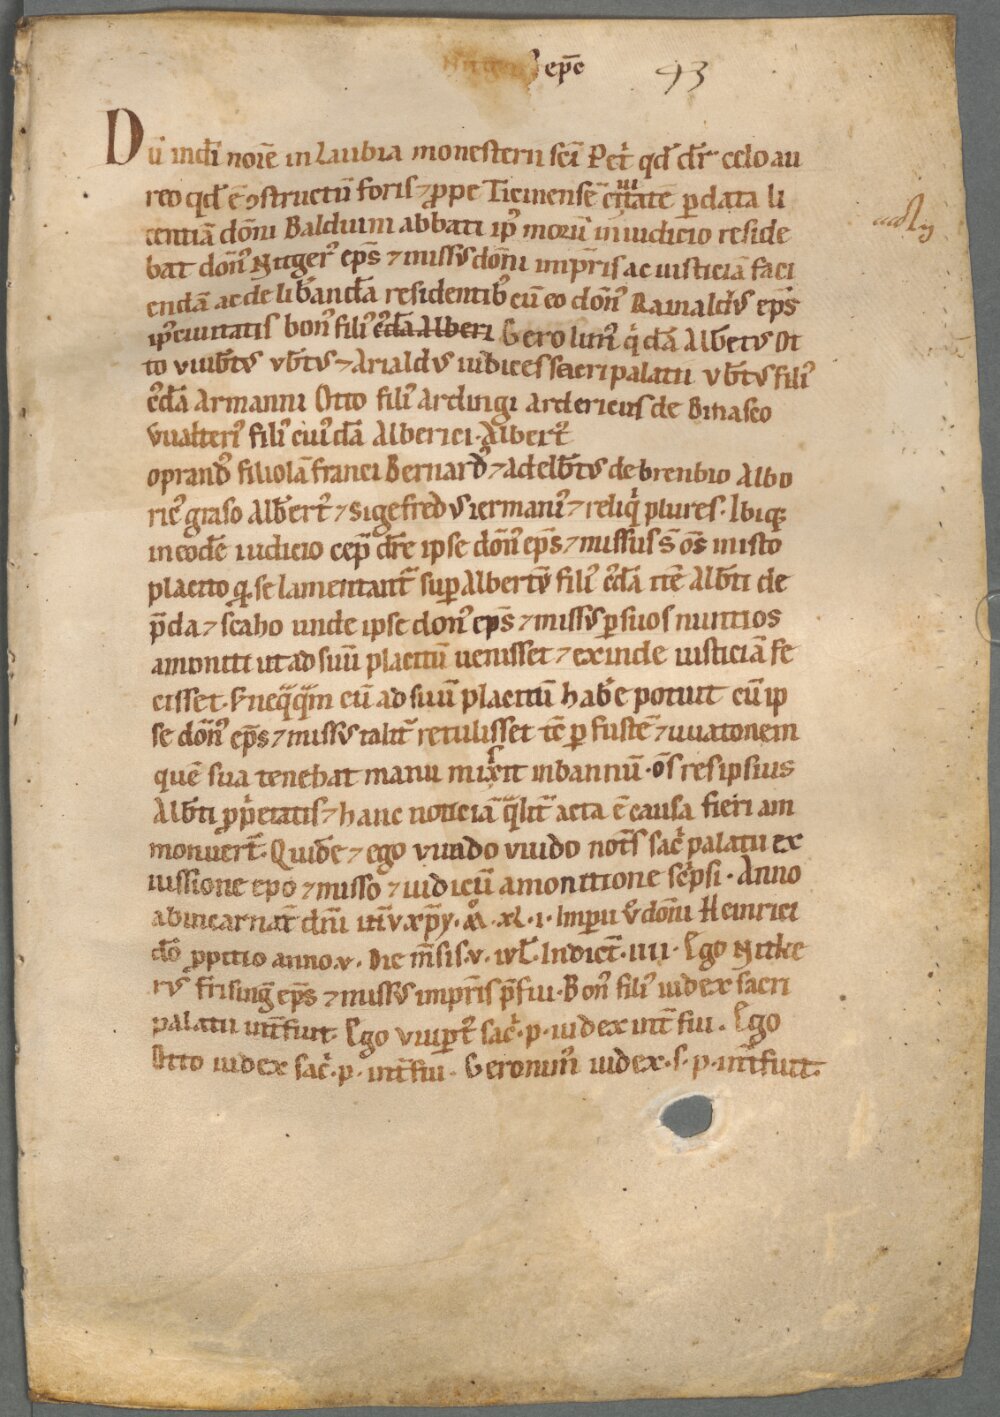 epc̄
93
Dū indī noīe in Laubia monesterii sc̄i Pet̄ qd̄ dr̄ celo au
reo qd̄ ē ɔstructū foris ⁊ ꝓpe Ticinensē ciuitatē ꝑ data li
centiā dōni Balduini abbati ip̄i monꝰ in iudicio reside
bat dōnꝰ Nitgerꝰ ep̄s ⁊ missꝰ dōni imp̄ris ac iusticiā faci
endā ac deliƀandā residentibꝰ cū eo dōnꝰ Rainaldꝰ ep̄s
ipꝰ ciuitatis bonꝰ filiꝰ Geroīmꝰ q̄dā Alƀtus Ot
to vuiƀtꝰ vƀtꝰ ⁊ Arialdꝰ iudices sacri palatii vƀtꝰ filiꝰ
c̄dā Armanni Otto filiꝰ Ardingi Ardericus de Binasco
vualterꝰ filiꝰ cuiꝰdā Alberici · Albertꝰ
oprandꝰ filiolā franci Bernardꝰ ⁊ Adelƀtꝰ de brenbio Albo
ricꝰ graso Alƀertꝰ ⁊ Sigefredꝰ iermanꝰ ⁊ reliq̄ plures · Ibiqꝫ
in eodē iudicio cep̄ dr̄e ipse dōnꝰ ep̄s ⁊ missus s̄ os̄ in isto
placito q̄ se lamentant̄ suꝑ Albertū filiꝰ c̄dā itē Alƀti de
p̄da ⁊ scaho unde ipse donꝰ ep̄s ⁊ missꝰ ꝑ suos nuntios
amoniti ut ad suū placitū uenisset ⁊ exinde iusticiā fe
cisset · ⁊ neq̄q̄m eū ad suū placitū habē potuit cū ip
se dōnꝰ ep̄s ⁊ missꝰ talit̄ retulisset tē ꝑ fustē ⁊ uuatonem
quē sua tenebat manu misit in bannū · os̄ res ipsius
Alƀti ꝓp̄etatis ⁊ hanc noticiā q̄lit̄ acta ē causa fieri am
monuer̄t · Quidē ⁊ ego vuido not̄s sac̄ palatii ex
iussione ep̄o ⁊ misso ⁊ iudicū amonitione sc̄psi · Anno
ab incarnat̄ dn̄i · xl · i · Imperii dōni Heinrici
dō ꝓpitio anno · v · Die m̄sis · v · iul̄ · Indict̄ · iiii · Ego Nitke
rꝰ frising̃ ep̄s ⁊ missꝰ imp̄ris p̄fui · Bonꝰ filiꝰ iudex sacri
palatii int̄fuit · Ego vuiꝑtꝰ sac̄ · p · iudex int̄fui · Ego
Otto iudex sac̄ · p · int̄fui · Geronimꝰ iudex · s · p · int̄fuit ·